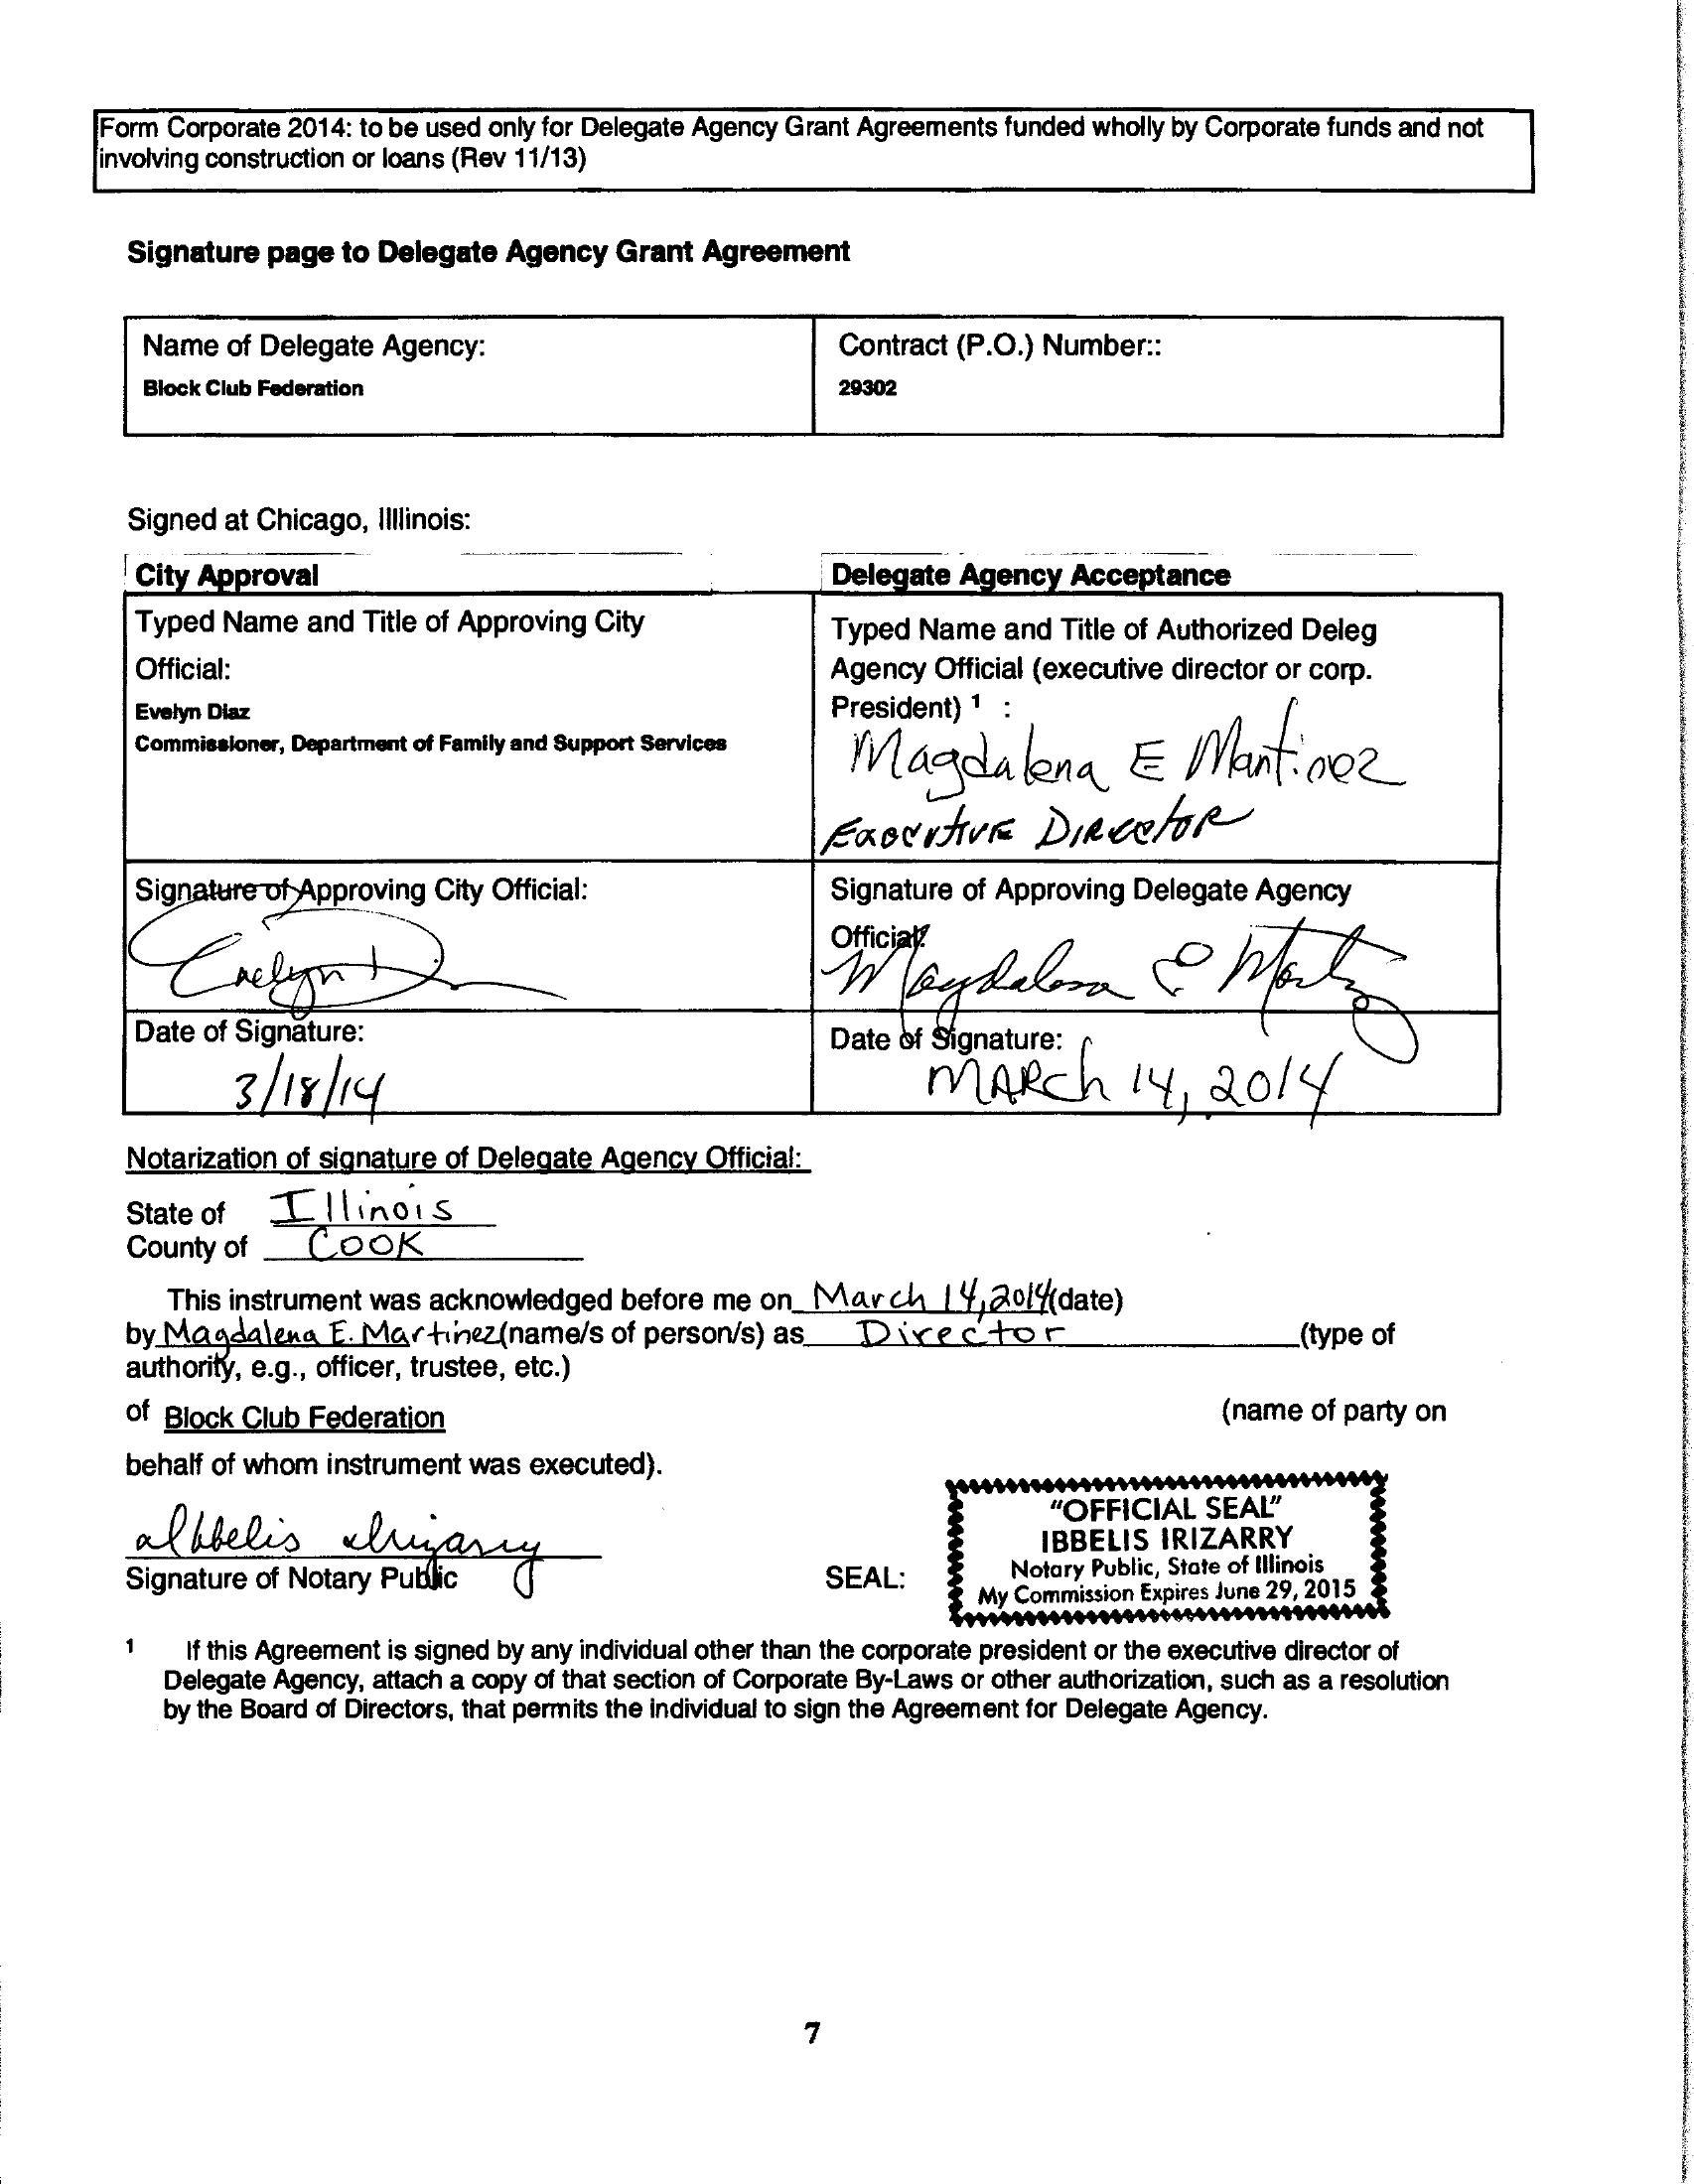 Form Corporate 2014: to be used only for Delegate Agency Grant Agreements funded wholly by Corporate funds and not
involving construction or loans (Rev 11/13)
Signature page to Delegate Agency Grant Agreement
Name of Delegate Agency:
Block Club Federation
Contract (P.O.) Number::
29302
Signed at Chicago, Illlinois:
City Approval
Delegate Agency Acceptance
Typed Name and Title of Approving City
Official:
Evelyn Diaz
Commissioner, Department of Family and Support Services
Typed Name and Title of Authorized Deleg
Agency Official (executive director or corp.
President) 1 :
Magdalena E Martinez
Executive Director
Signature of Approving City Official:
Evelyn D
Signature of Approving Delegate Agency
Official:
Magdalena E Martinez
Date of Signature:
3/18/14
Date of Signature:
MARCh 14, 2014
Notarization of signature of Delegate Agency Official:
State of Illinois
County of COOK
This instrument was acknowledged before me on March 14, 2014 (date)
by Magdalena E. Martinez (name/s of person/s) as Director (type of
authority, e.g., officer, trustee, etc.)
of Block Club Federation (name of party on
behalf of whom instrument was executed).
Ibbelis Irizarry
Signature of Notary Public
SEAL:
"OFFICIAL SEAL"
IBBELIS IRIZARRY
Notary Public, State of Illinois
My Commission Expires June 29, 2015
1 If this Agreement is signed by any individual other than the corporate president or the executive director of
Delegate Agency, attach a copy of that section of Corporate By-Laws or other authorization, such as a resolution
by the Board of Directors, that permits the individual to sign the Agreement for Delegate Agency.
7